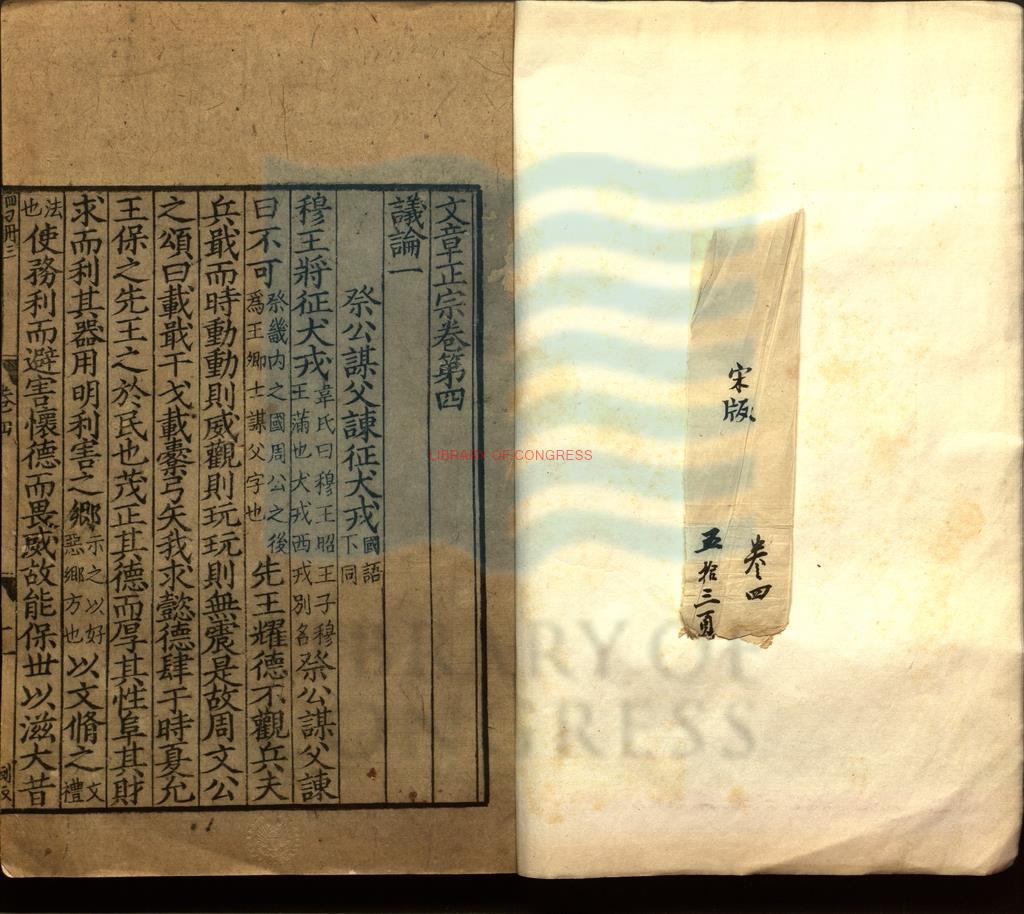 宋版
卷四
五拾三頁
文章正宗卷第四
議論一
祭公謀父諫征犬戎國語下同
穆王將征犬戎韋氏曰穆王昭王子穆王滿也犬戎西戎別名祭公謀父諫
曰不可祭畿内之國周公之後爲王卿士謀父字也先王耀德不觀兵夫
兵戢而時動動則威觀則玩玩則無震是故周文公
之頌曰載戢干戈載櫜弓矢我求懿德肆于時夏允
王保之先王之於民也茂正其德而厚其性阜其財
求而利其器用明利害之鄉示之以好惡鄉方也以文脩之文禮
法也使務利而避害懷德而畏威故能保丗以滋大昔
LIBRARY OF CONGRESS
LIBRARY OF
CONGRESS